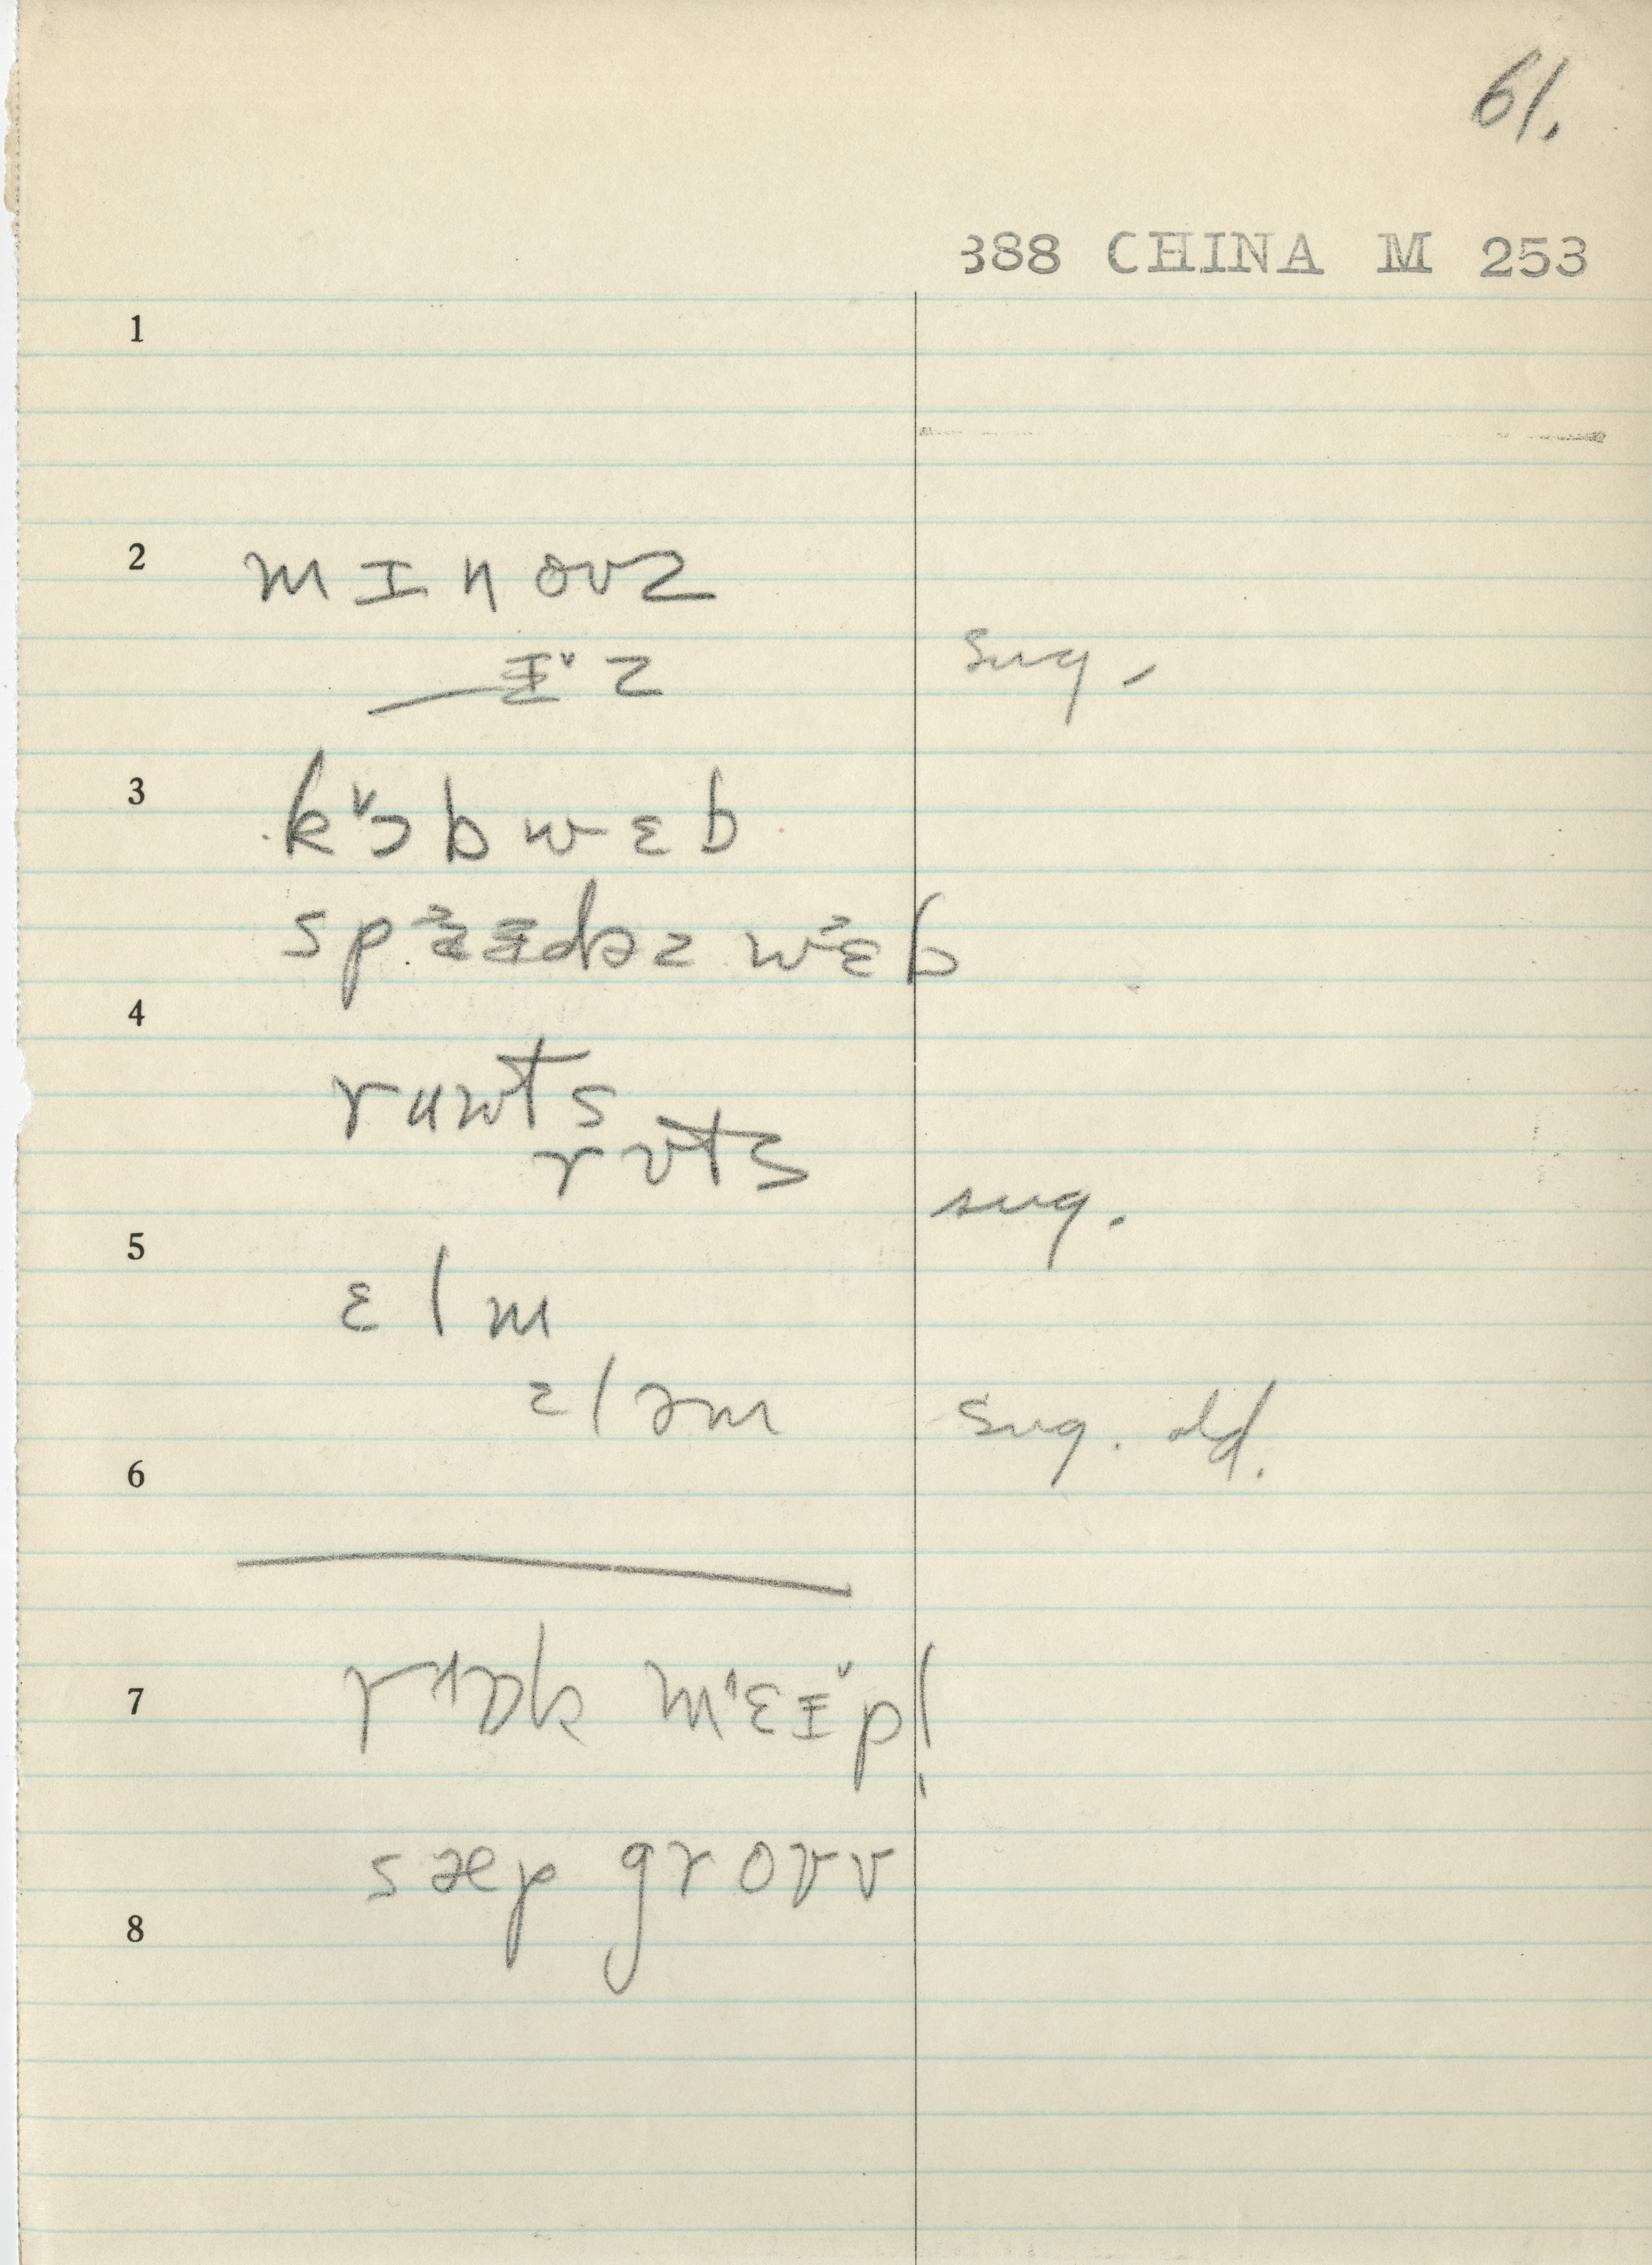 61.
388 CHINA M 253
1
2 mɪnoʊz
— ɨ̌z sug.
3 k˅ɔbwɛb
spaɨdəz wɛb
4 ruwts
rʊts sug.
5 ɛlm
ɛləm sug. old.
6
7 rɑk mɛɪpl̩
sæp groʊv
8